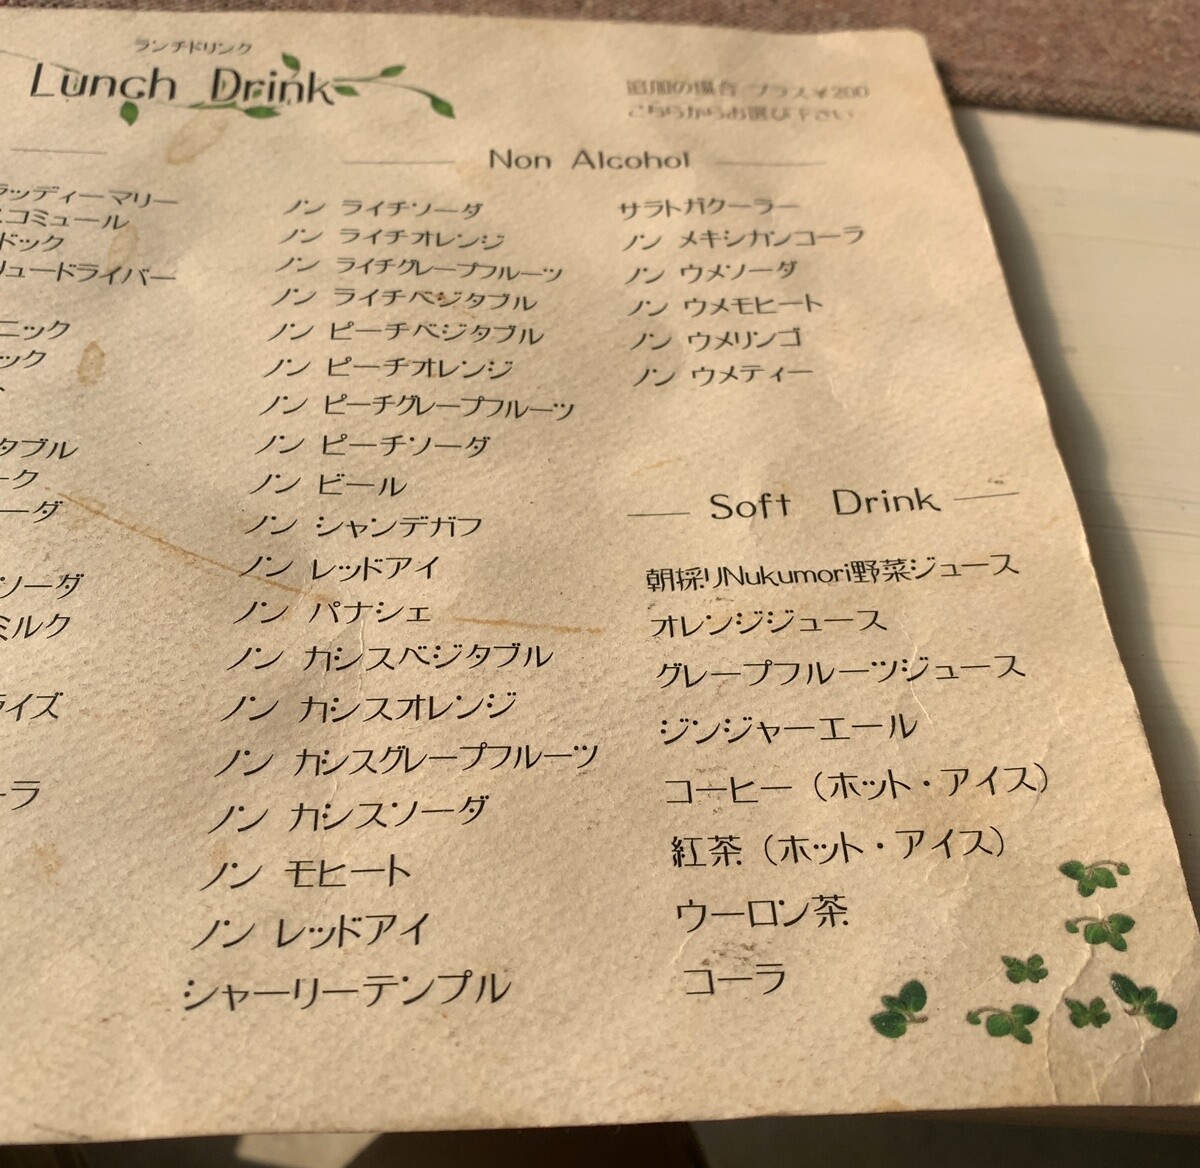 ランチドリンク
Lunch Drink
追加の場合 プラス¥200
こちらからお選び下さい
ラッディーマリー
スコミュール
ドック
リュードライバー
ニック
ック
タブル
ーク
ーダ
ソーダ
ミルク
ライズ
ーラ
Non Alcohol
ノン ライチソーダ
ノン ライチオレンジ
ノン ライチグレープフルーツ
ノン ライチベジタブル
ノン ピーチベジタブル
ノン ピーチオレンジ
ノン ピーチグレープフルーツ
ノン ピーチソーダ
ノン ビール
ノン シャンデガフ
ノン レッドアイ
ノン パナシェ
ノン カシスベジタブル
ノン カシスオレンジ
ノン カシスグレープフルーツ
ノン カシスソーダ
ノン モヒート
ノン レッドアイ
シャーリーテンプル
サラトガクーラー
ノン メキシカンコーラ
ノン ウメソーダ
ノン ウメモヒート
ノン ウメリンゴ
ノン ウメティー
Soft Drink
朝採りNukumori野菜ジュース
オレンジジュース
グレープフルーツジュース
ジンジャーエール
コーヒー（ホット・アイス）
紅茶（ホット・アイス）
ウーロン茶
コーラ